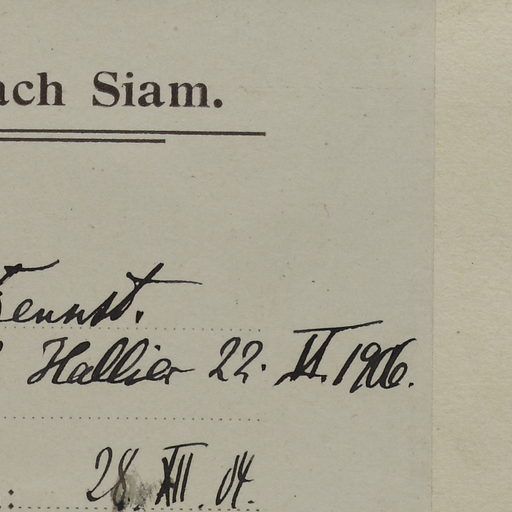 ach Siam.
Kennst.
Hallier 22. II. 1906.
: 28. XII. 04.